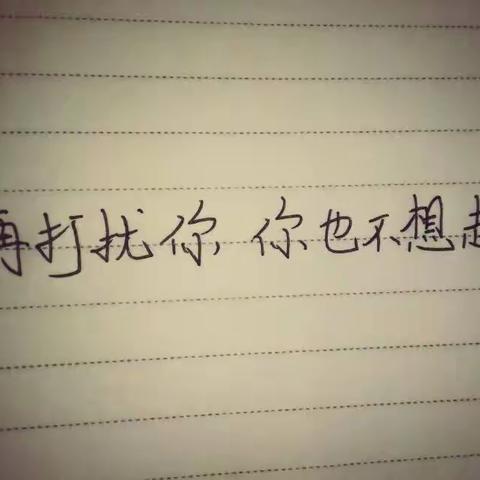 再打扰你,你也不想起